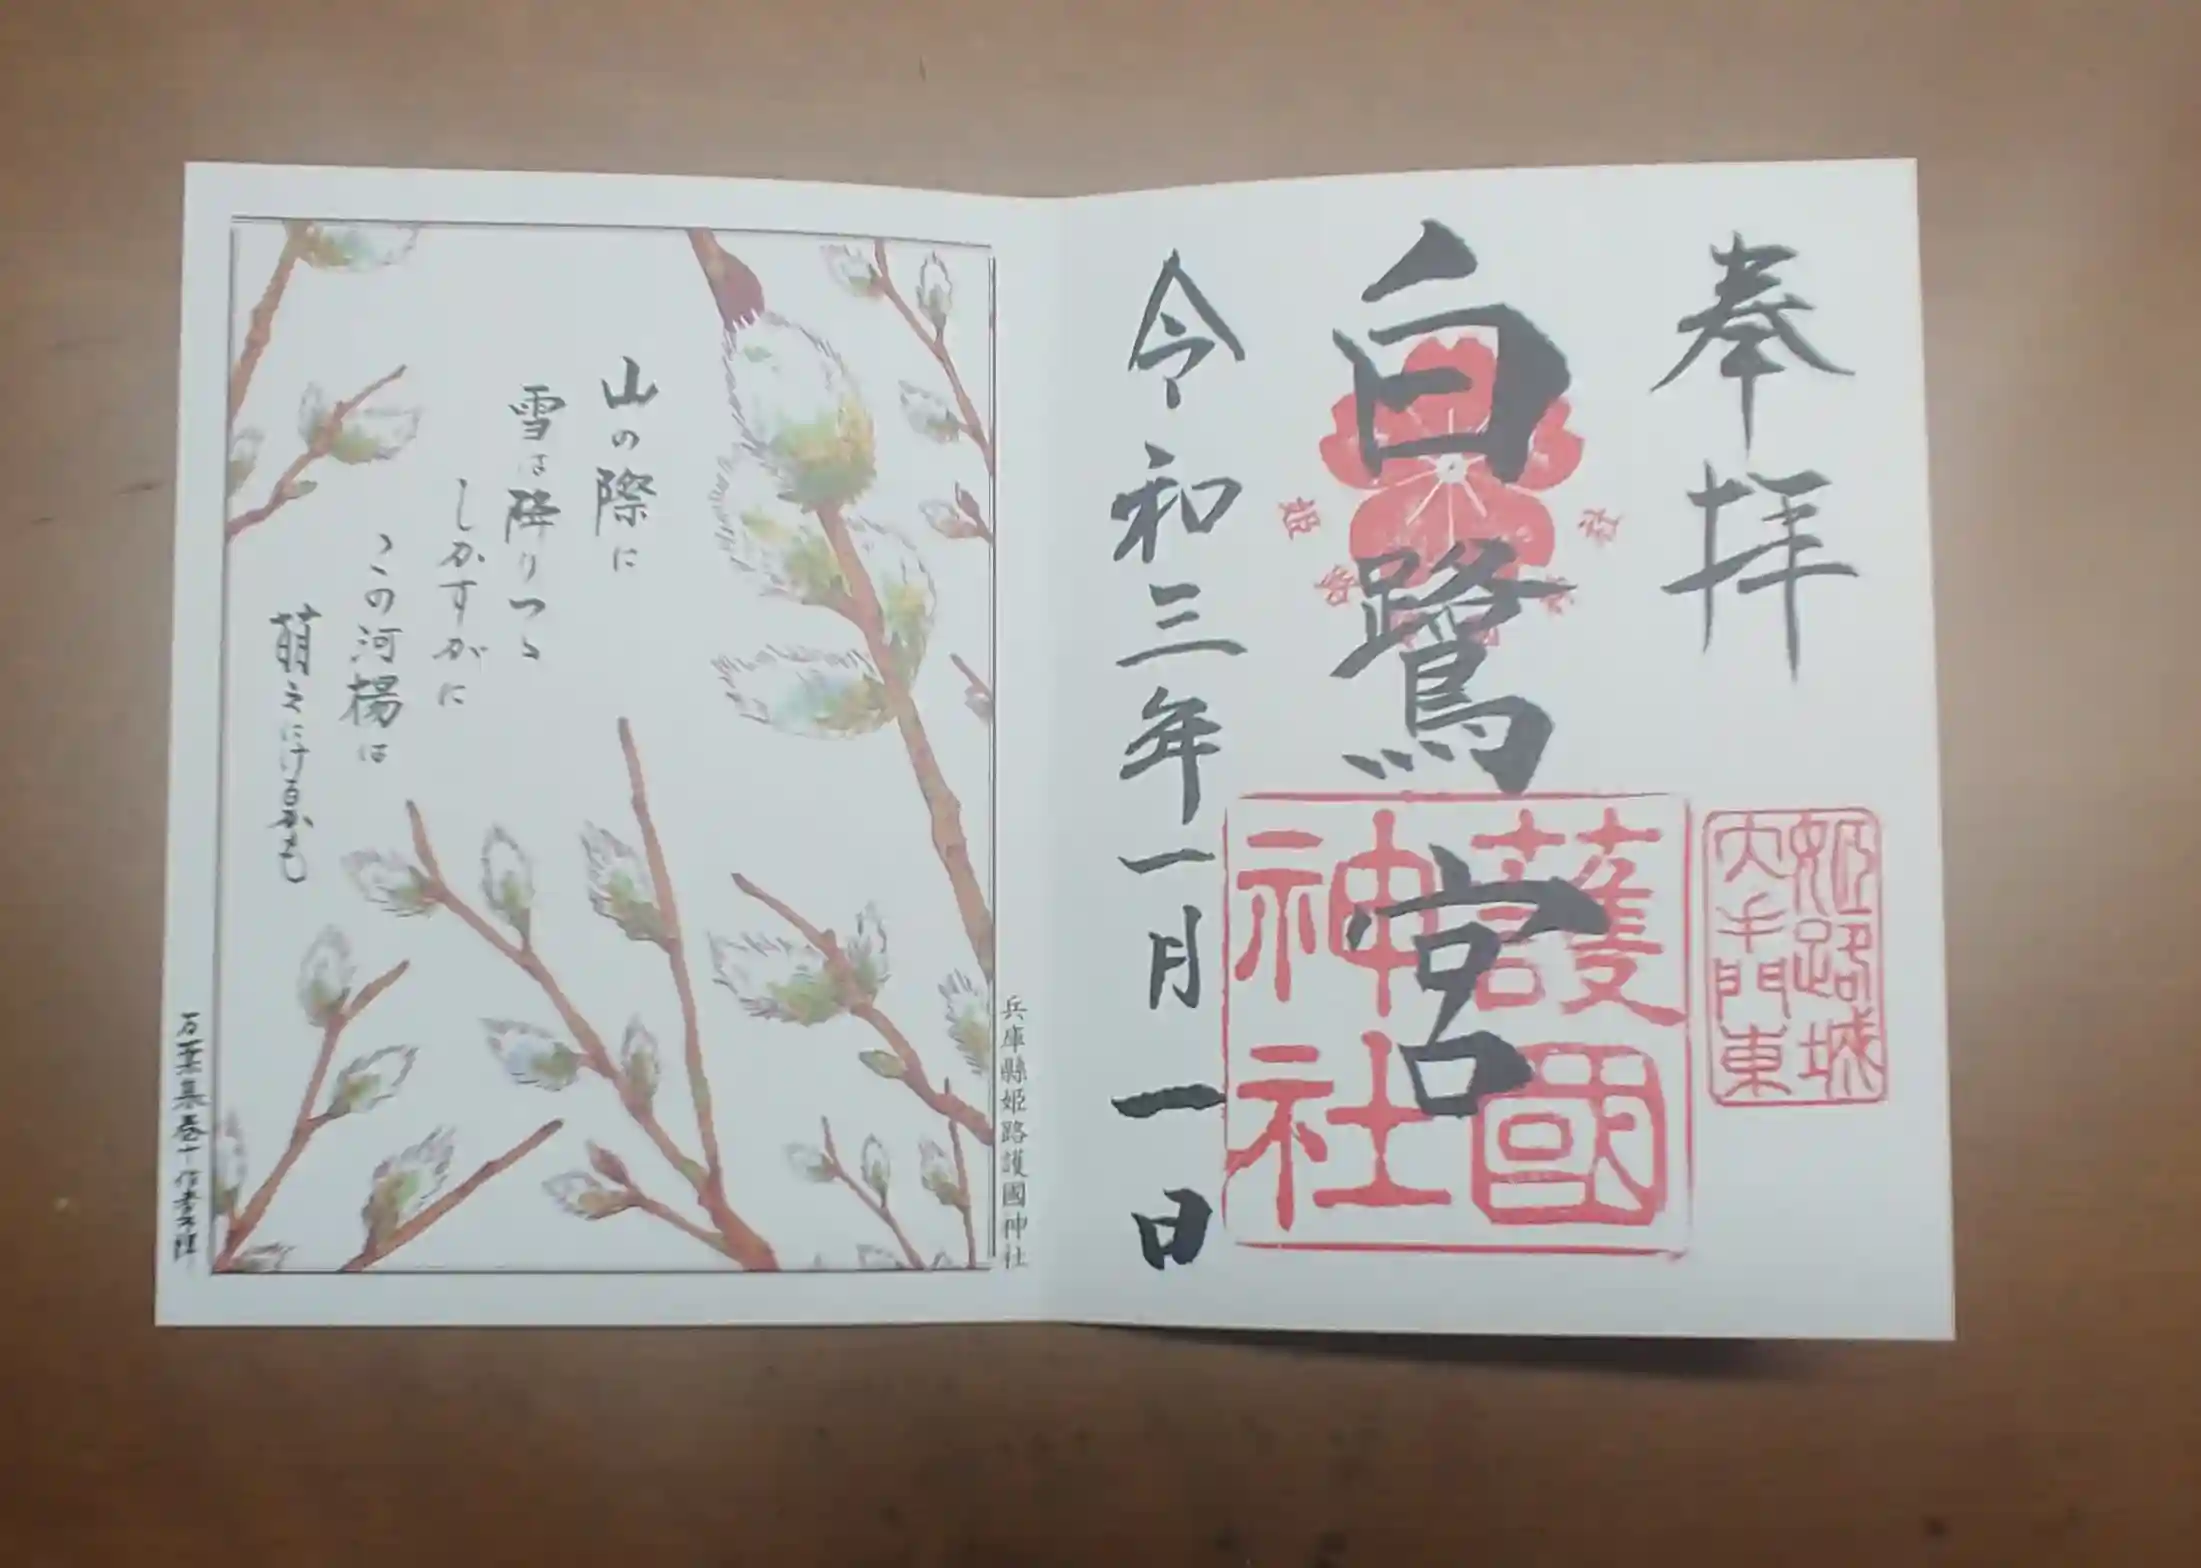 奉拝
姫路城
大手門東
白鷺宮
護國
神社
令和三年一月一日
兵庫縣姫路護國神社
山の際に
雪は降りつゝ
しかすがに
この河楊は
萌えにけるかも
万葉集巻十作者不詳